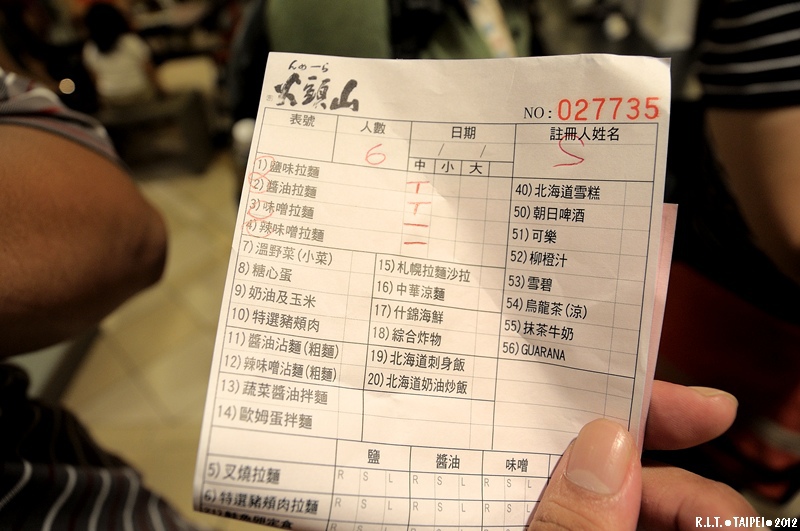 らーめん
山頭火
NO: 027735
表號 人數 日期 註冊人姓名
6 / / S
中 小 大
1) 鹽味拉麵 T
2) 醬油拉麵 T
3) 味噌拉麵 一
4) 辣味噌拉麵 二
7) 溫野菜(小菜)
8) 糖心蛋
9) 奶油及玉米
10) 特選豬頰肉
11) 醬油沾麵(粗麵)
12) 辣味噌沾麵(粗麵)
13) 蔬菜醬油拌麵
14) 歐姆蛋拌麵
15) 札幌拉麵沙拉
16) 中華涼麵
17) 什錦海鮮
18) 綜合炸物
19) 北海道刺身飯
20) 北海道奶油炒飯
40) 北海道雪糕
50) 朝日啤酒
51) 可樂
52) 柳橙汁
53) 雪碧
54) 烏龍茶(涼)
55) 抹茶牛奶
56) GUARANA
鹽 醬油 味噌
5) 叉燒拉麵 R S L R S L R S
6) 特選豬頰肉拉麵 R S L R S L R S
R.I.T.●TAIPEI●2012